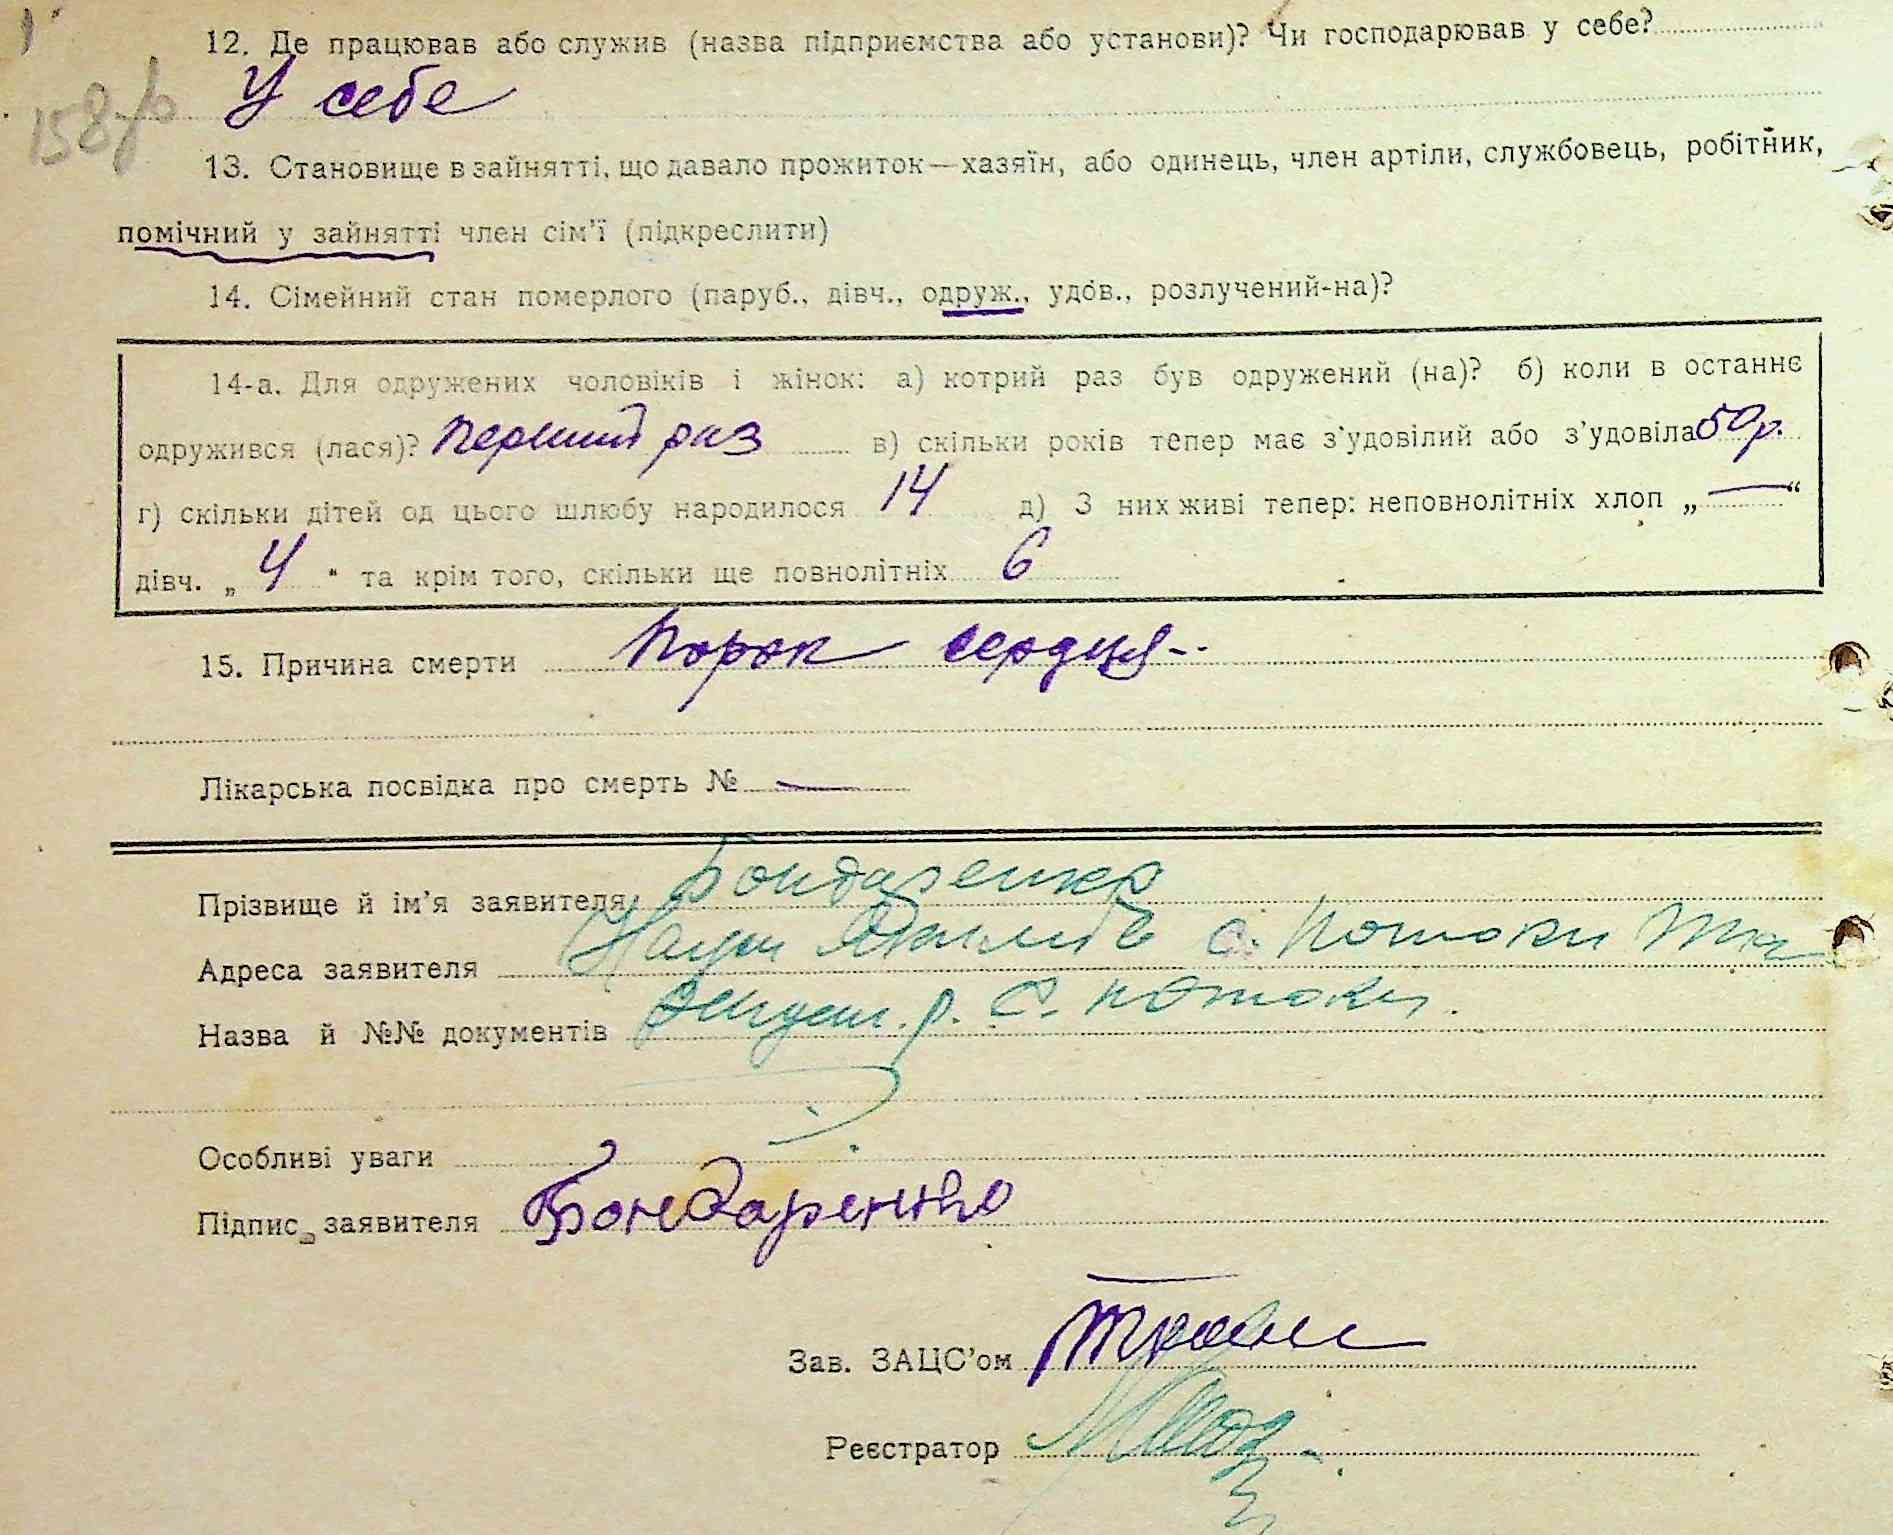 12. Де працював або служив (назва підприємства або установи)? Чи господарював у себе?
158
У себе
13. Становище в зайнятті, що давало прожиток—хазяїн, або одинець, член артіли, службовець, робітник,
помічний у зайнятті член сім'ї (підкреслити)
14. Сімейний стан померлого (паруб., дівч., одруж., удов., розлучений-на)?
14-а. Для одружених чоловіків і жінок: а) котрий раз був одружений (на)? б) коли в останнє
одружився (лася)? перший раз в) скільки років тепер має з'удовілий або з'удовіла 50 р.
г) скільки дітей од цього шлюбу народилося 14 д) З них живі тепер: неповнолітніх хлоп „ — “
дівч. „ 4 “ та крім того, скільки ще повнолітніх 6
15. Причина смерти Порок сердця
Лікарська посвідка про смерть № —
Прізвище й ім'я заявителя Бондаренко
Адреса заявителя Наум с. Потоки
Назва й №№ документів р. С. Потоки.
Особливі уваги
Підпис заявителя Бондаренко
Зав. ЗАЦС'ом
Реєстратор